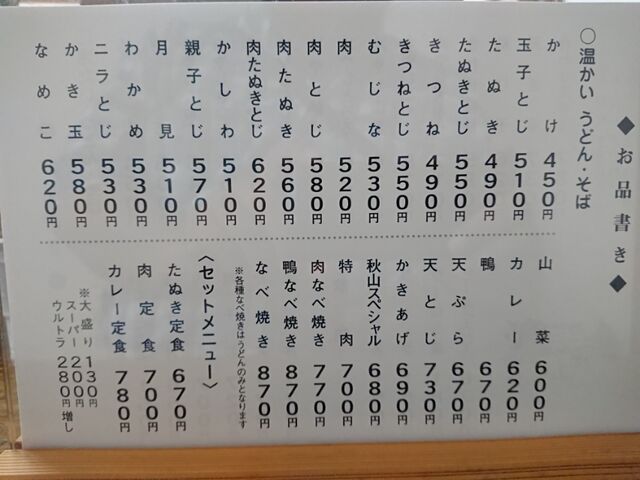 ◆お品書き◆
○温かい うどん・そば
かけ 450円
玉子とじ 510円
たぬき 490円
たぬきとじ 550円
きつね 490円
きつねとじ 550円
むじな 530円
肉 520円
肉とじ 580円
肉たぬき 560円
肉たぬきとじ 620円
かしわ 510円
親子とじ 570円
月見 510円
わかめ 530円
ニラとじ 530円
かき玉 580円
なめこ 620円
山菜 600円
カレー 620円
鴨 670円
天ぷら 670円
天とじ 730円
かきあげ 690円
秋山スペシャル 680円
特肉 700円
肉なべ焼き 770円
鴨なべ焼き 870円
なべ焼き 870円
※各種なべ焼きはうどんのみとなります
〈セットメニュー〉
たぬき定食 670円
肉定食 700円
カレー定食 780円
※大盛り 130円
スーパー 200円
ウルトラ 280円 増し